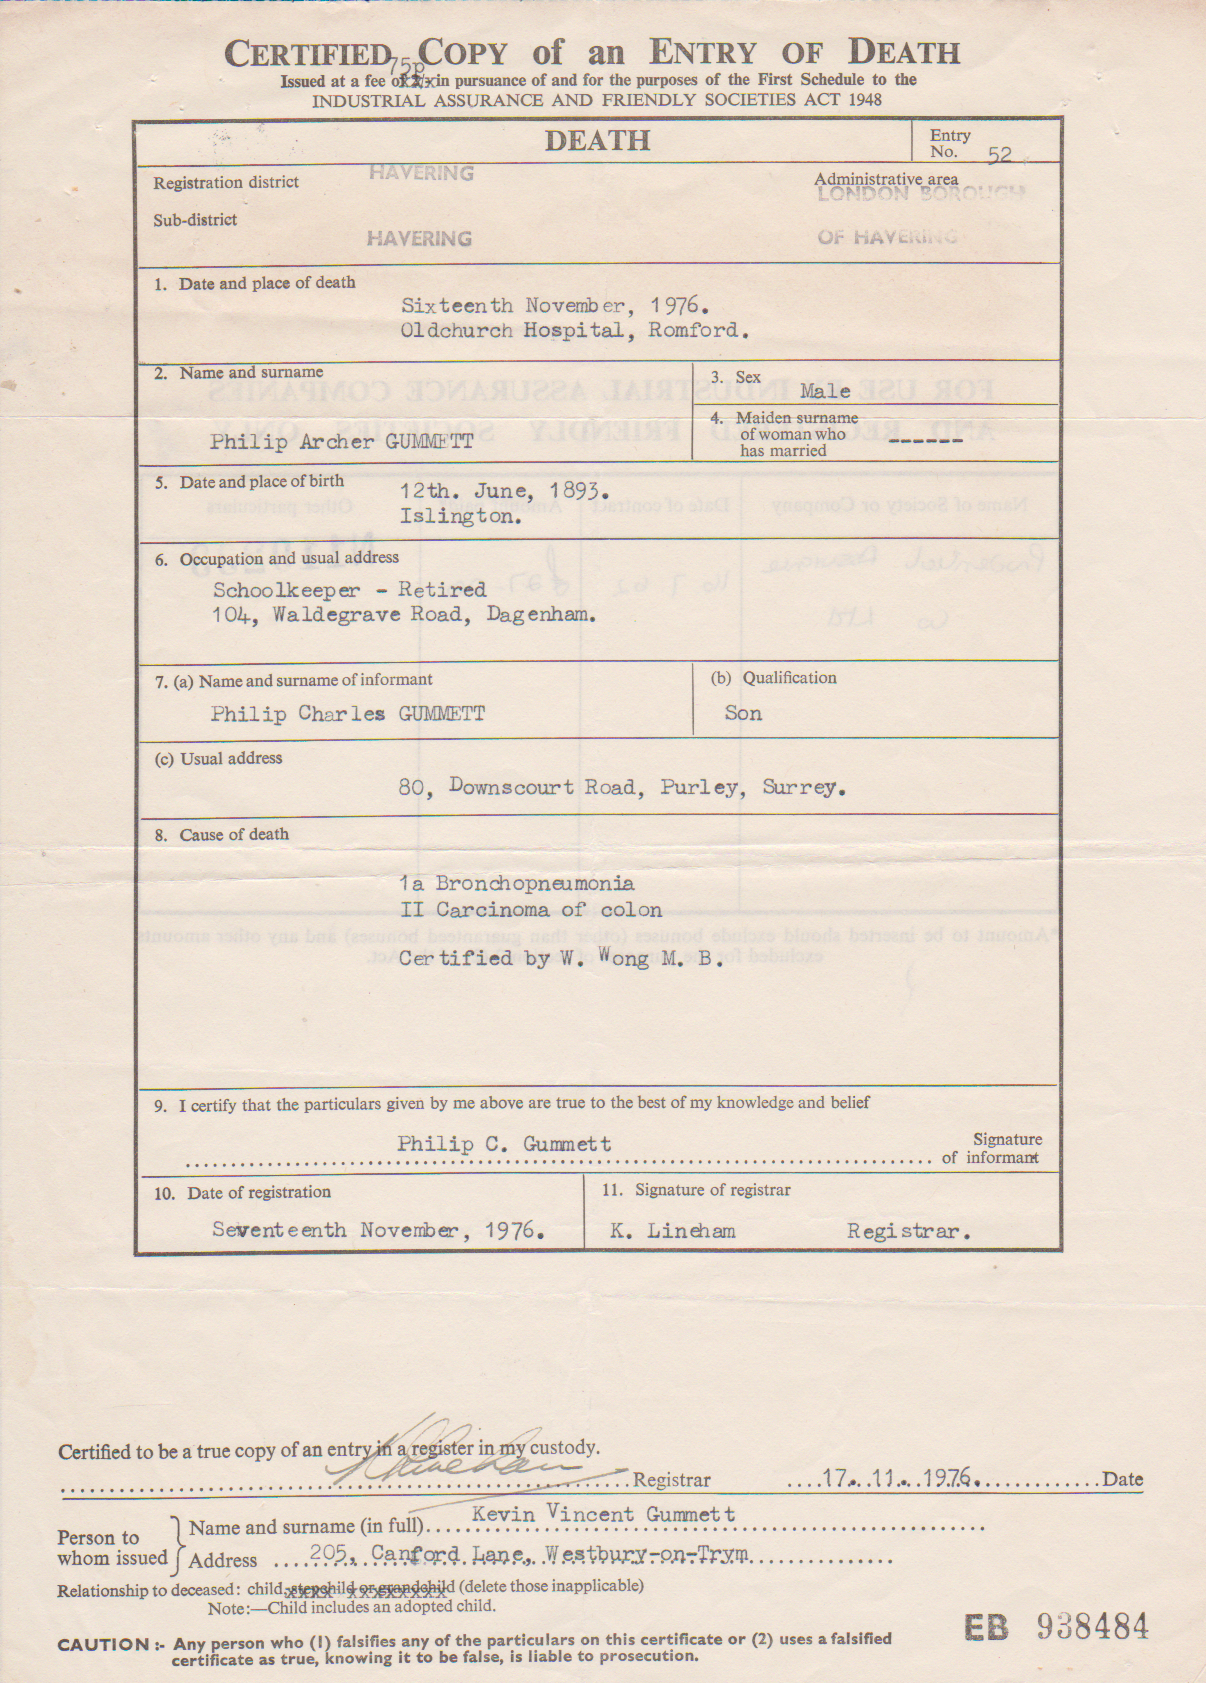 CERTIFIED COPY of an ENTRY OF DEATH
75p
Issued at a fee of in pursuance of and for the purposes of the First Schedule to the
INDUSTRIAL ASSURANCE AND FRIENDLY SOCIETIES ACT 1948
DEATH
Entry No. 52
Registration district HAVERING
Administrative area LONDON BOROUGH
Sub-district HAVERING
OF HAVERING
1. Date and place of death
Sixteenth November, 1976.
Oldchurch Hospital, Romford.
2. Name and surname
Philip Archer GUMMETT
3. Sex
Male
4. Maiden surname
of woman who
has married
------
5. Date and place of birth
12th. June, 1893.
Islington.
6. Occupation and usual address
Schoolkeeper - Retired
104, Waldegrave Road, Dagenham.
7. (a) Name and surname of informant
Philip Charles GUMMETT
(b) Qualification
Son
(c) Usual address
80, Downscourt Road, Purley, Surrey.
8. Cause of death
1a Bronchopneumonia
II Carcinoma of colon
Certified by W. Wong M. B.
9. I certify that the particulars given by me above are true to the best of my knowledge and belief
Philip C. Gummett
Signature
of informant
10. Date of registration
Seventeenth November, 1976.
11. Signature of registrar
K. Lineham Registrar.
Certified to be a true copy of an entry in a register in my custody.
Registrar 17. 11. 1976. Date
Person to
whom issued
Name and surname (in full) Kevin Vincent Gummett
Address 205, Canford Lane, Westbury-on-Trym
Relationship to deceased: child, stepchild or grandchild (delete those inapplicable)
Note:—Child includes an adopted child.
EB 938484
CAUTION :- Any person who (1) falsifies any of the particulars on this certificate or (2) uses a falsified
certificate as true, knowing it to be false, is liable to prosecution.